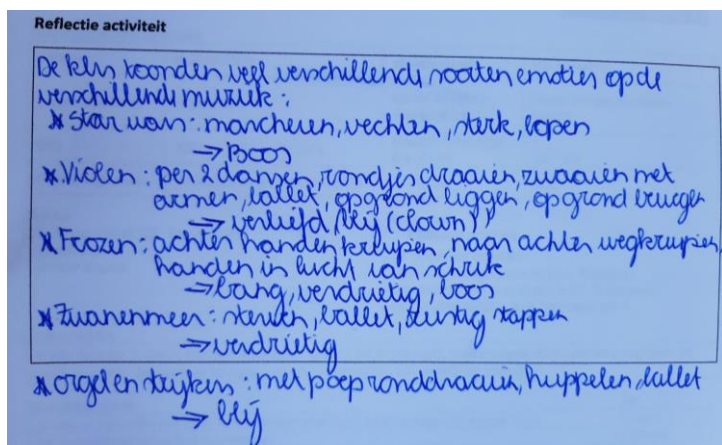 Reflectie activiteit
De kls toonden veel verschillende soorten emoties op de
verschillende muziek:
* Star wars: marcheren, vechten, sterk, lopen
→ Boos
* Violen: per 2 dansen, rondjes draaien, zwaaien met
armen, ballet, op grond liggen, op grond
→ verliefd/blij (clown)
* Frozen: achter handen kruipen, naar achter wegkruipen,
handen in lucht van schrik
→ bang, verdrietig, boos
* Zwanenmeer: ballet, rustig stappen
→ verdrietig
* orgel en strijkers: met poep ronddraaien, huppelen, ballet
→ blij